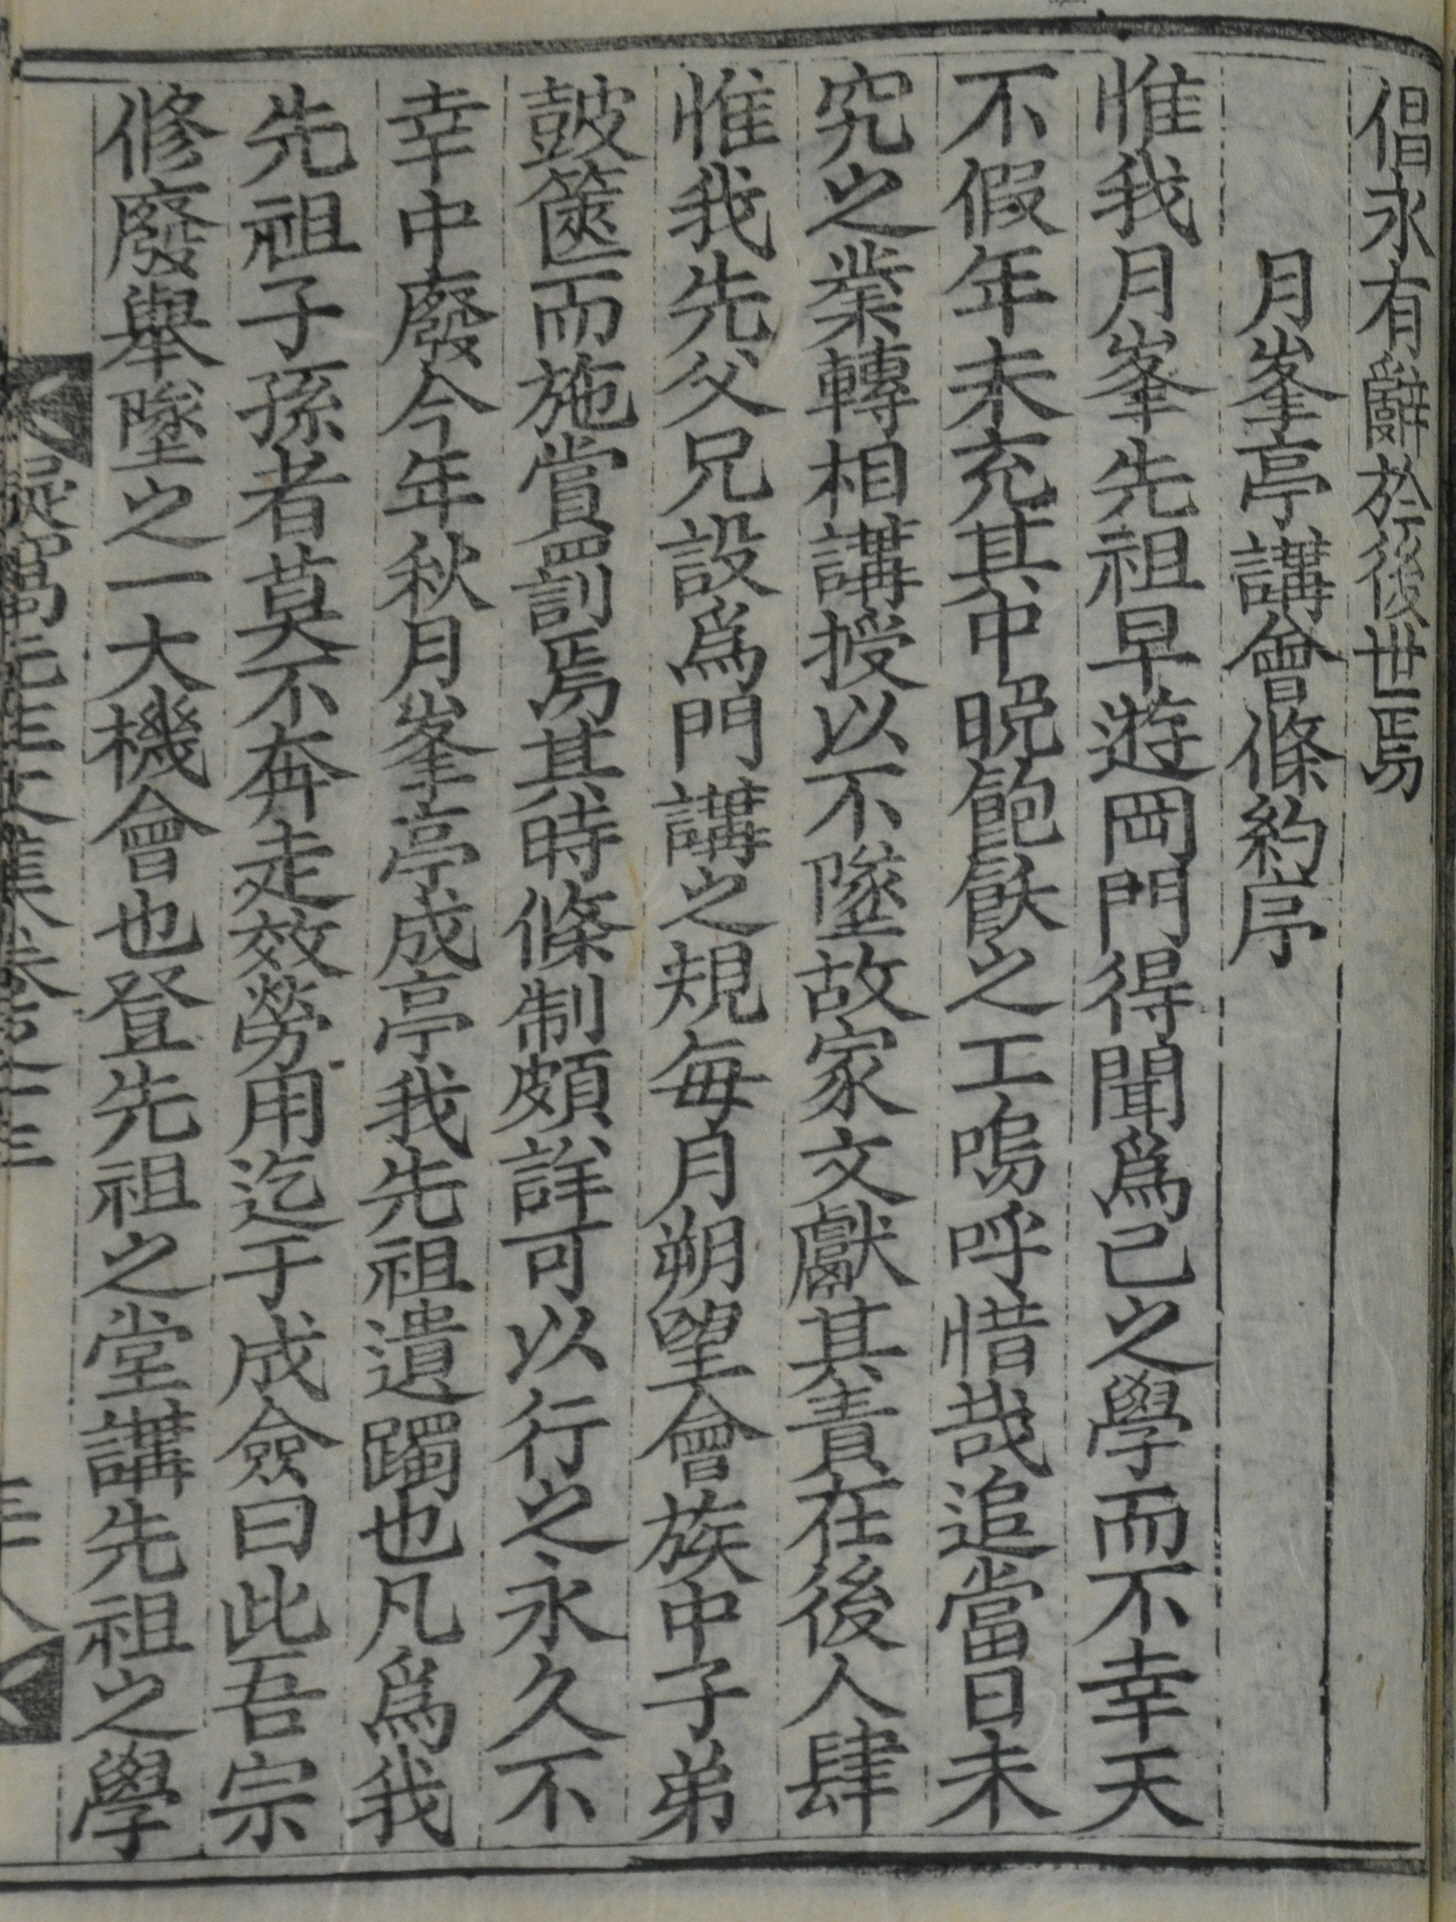 倡永有辭於後世焉
月峯亭講會條約序
惟我月峯先祖早遊岡門得聞爲己之學而不幸天
不假年未充其中晩飽飫之工嗚呼惜哉追當日未
究之業轉相講授以不墜故家文獻其責在後人肆
惟我先父兄設爲門講之規每月朔望會族中子弟
鼓篋而施賞罰焉其時條制頗詳可以行之永久不
幸中廢今年秋月峯亭成亭我先祖遺躅也凡爲我
先祖子孫者莫不奔走效勞用迄于成僉曰此吾宗
修廢舉墜之一大機會也登先祖之堂講先祖之學